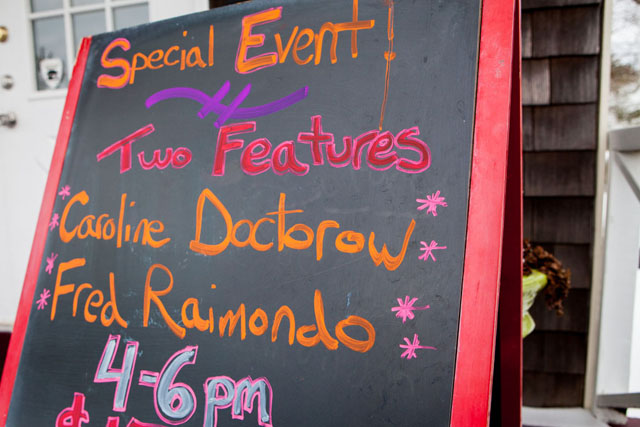 Special Event!
Two Features
Caroline Doctorow
Fred Raimondo
4-6 pm